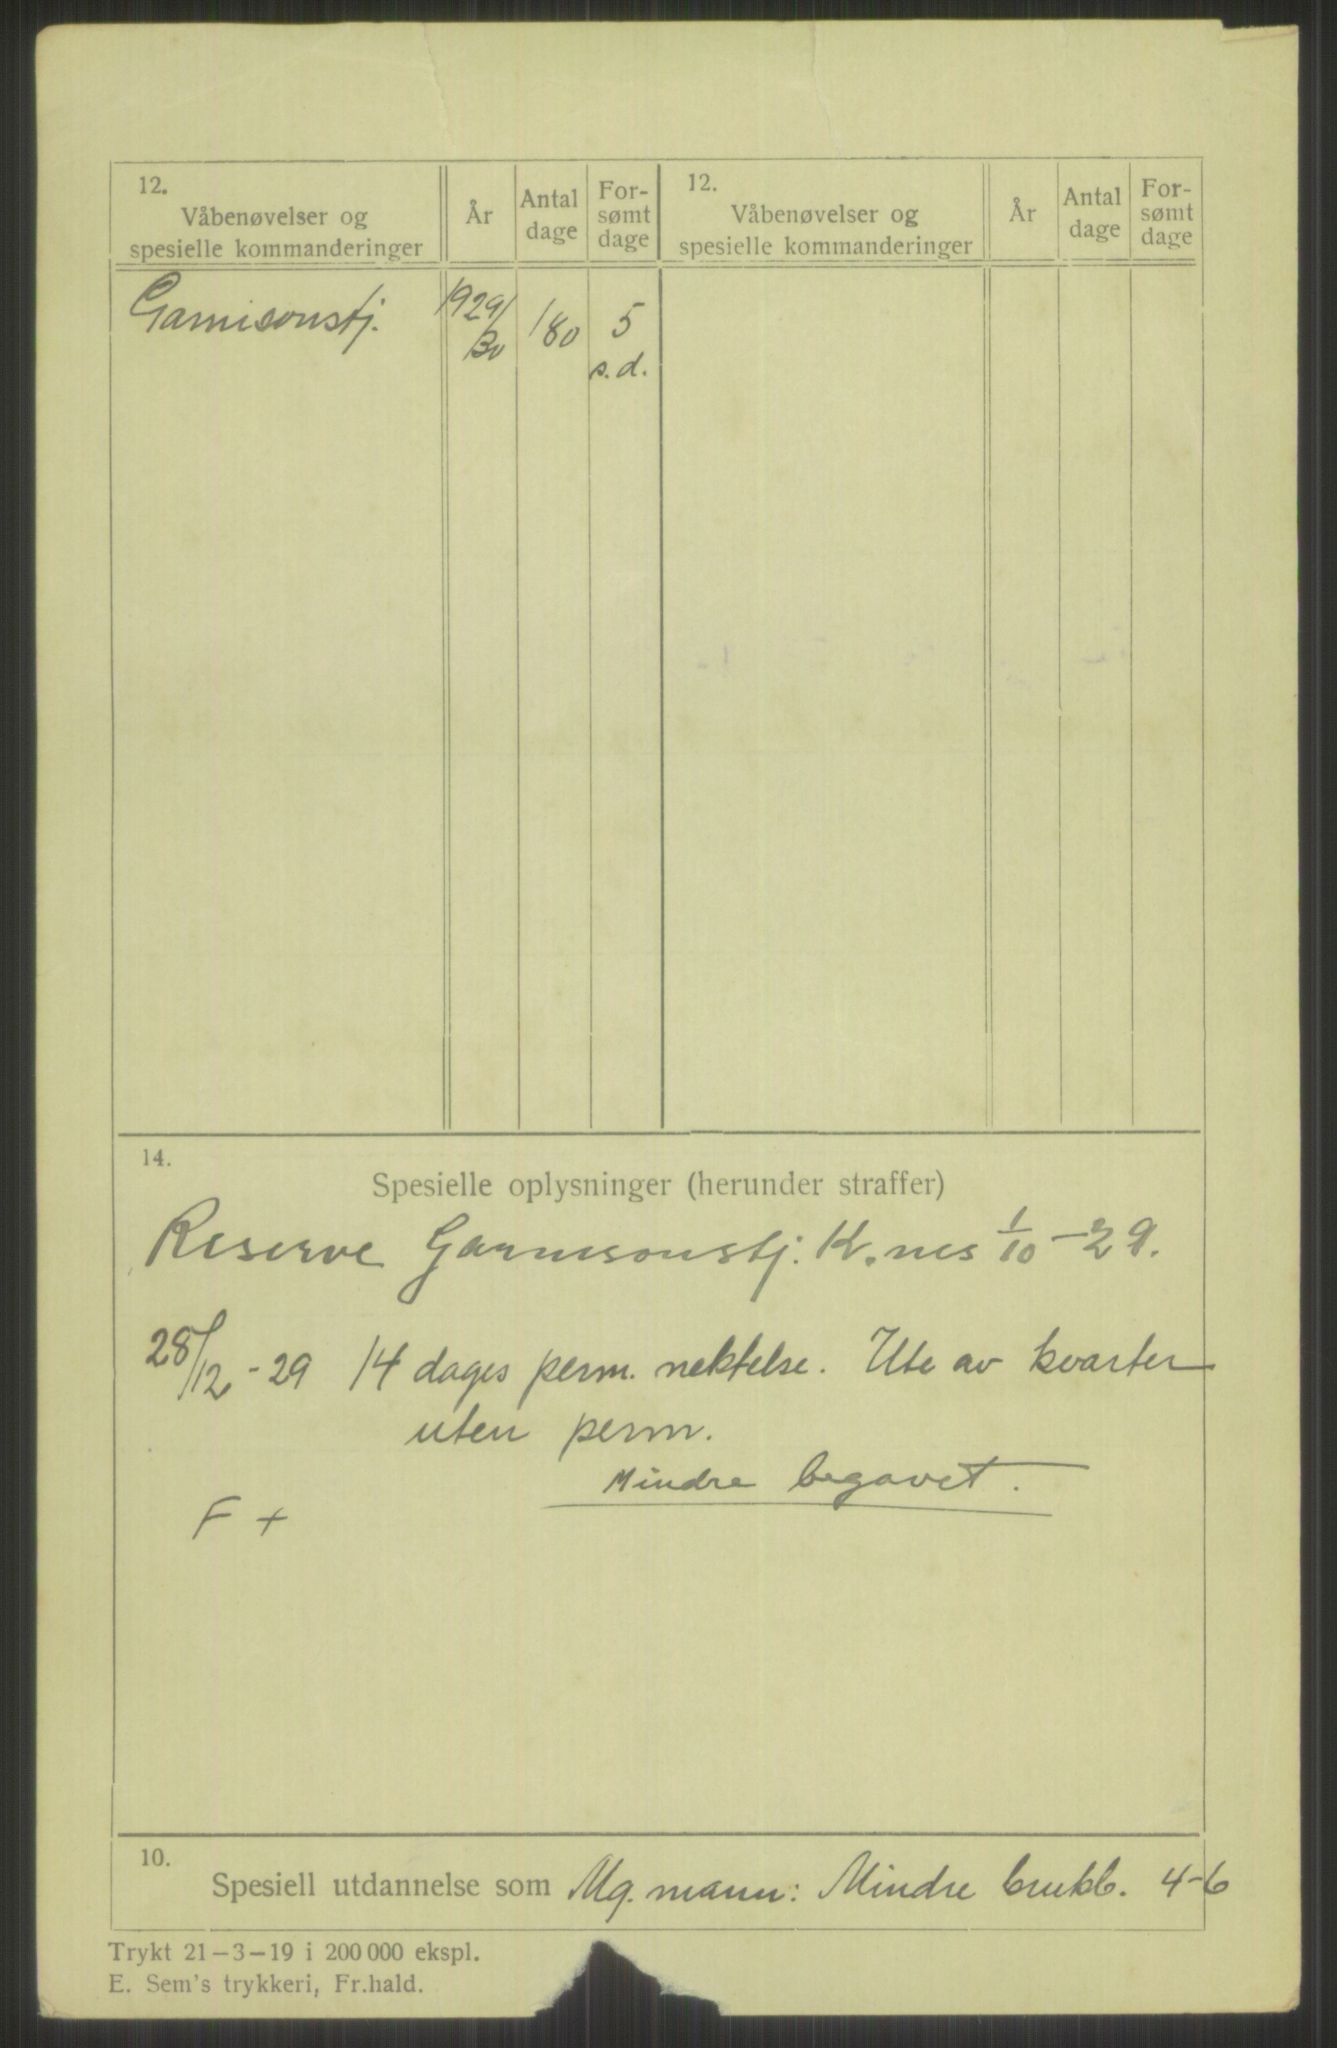 12.
Våbenøvelser og
spesielle kommanderinger
År
Antal
dage
For-
sømt
dage
12.
Våbenøvelser og
spesielle kommanderinger
År
Antal
dage
For-
sømt
dage
Garnisonstj.
1929/
30
180
5
s.d.
14.
Spesielle oplysninger (herunder straffer)
Reserve Garnisonstj. K.nes 1/10 -29.
28/12 - 29 14 dages perm. nektelse. Ute av kvarter
uten perm.
Mindre begavet.
F +
10.
Spesiell utdannelse som Mg. mann: Mindre brukb. 4-6
Trykt 21-3-19 i 200 000 ekspl.
E. Sem's trykkeri, Fr.hald.